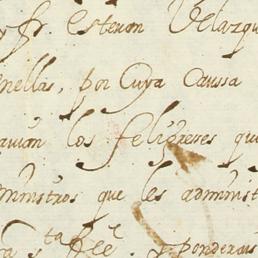 fr. esteuan Velazqu
nellas, por Cuya Caussa
auian los feligreses que
ministros que les administ
ponderaua